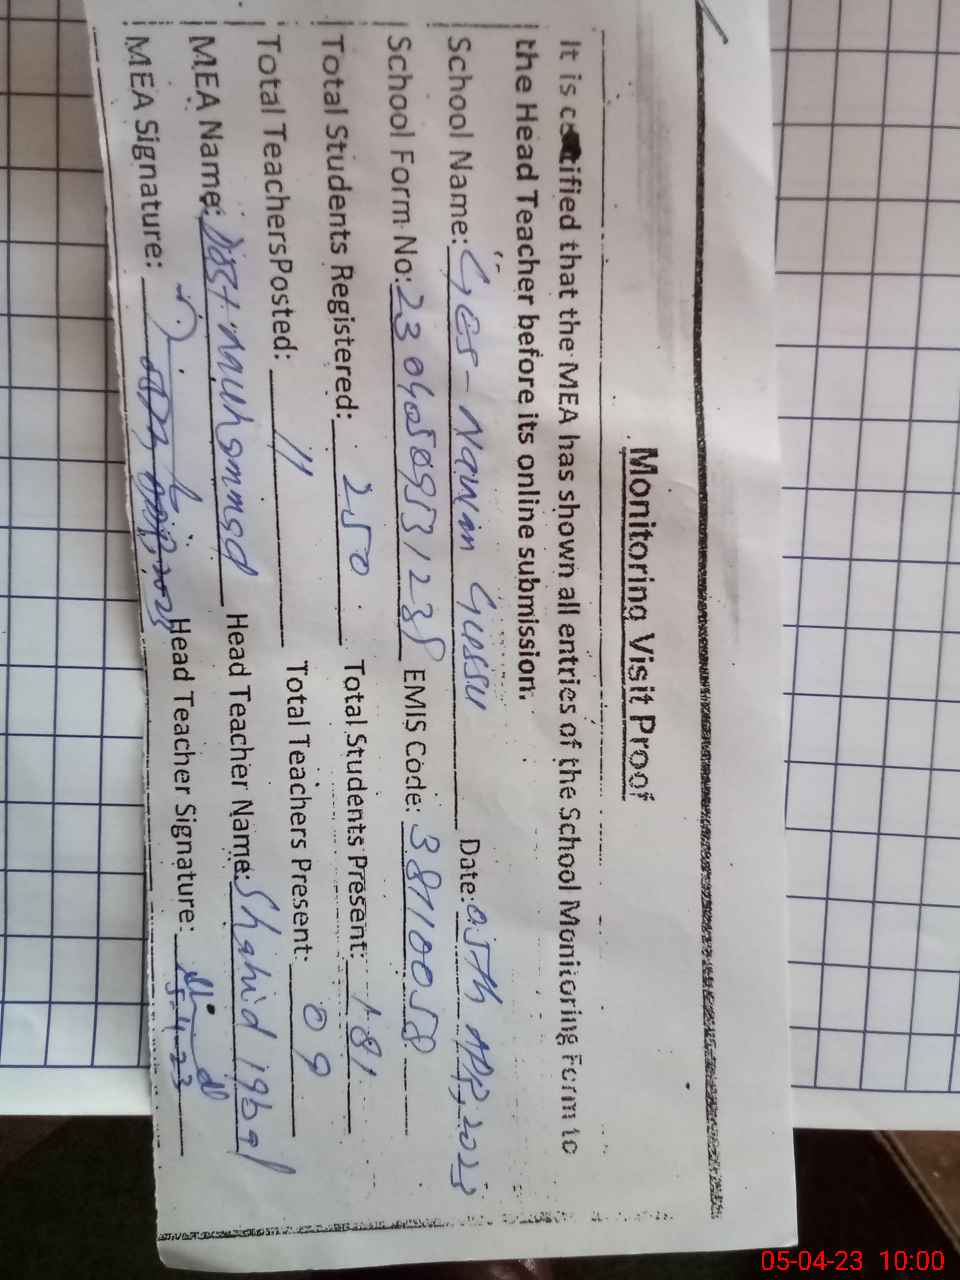 Monitoring Visit Proof
It is certified that the MEA has shown all entries of the School Monitoring Form to
the Head Teacher before its online submission.
School Name: GES- Nawin Gussu Date: 05TH APR, 2023
School Form No: EMIS Code: 38110058
Total Students Registered: 250 Total Students Present: 181
Total Teachers Posted: 11 Total Teachers Present: 09
MEA Name: Dost Muhammad Head Teacher Name: Shahid iqbal
MEA Signature: Head Teacher Signature:
5-4-23
05-04-23 10:00